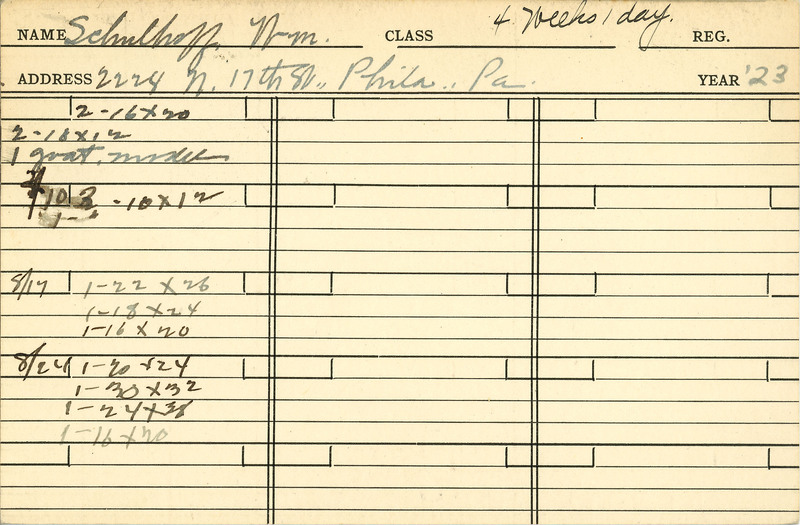 NAME Schulhoff, Wm. CLASS 4 Weeks 1 day. REG.
ADDRESS 2228 N. 17th St., Phila., Pa. YEAR '23
2-16x20
2-18x12
1 goat. model
/10 2 -10x12
1-
8/17 1-22 x 26
1-18x24
1-16 x 20
8/24 1-20 x24
1-30x32
1-24x36
1-16x20